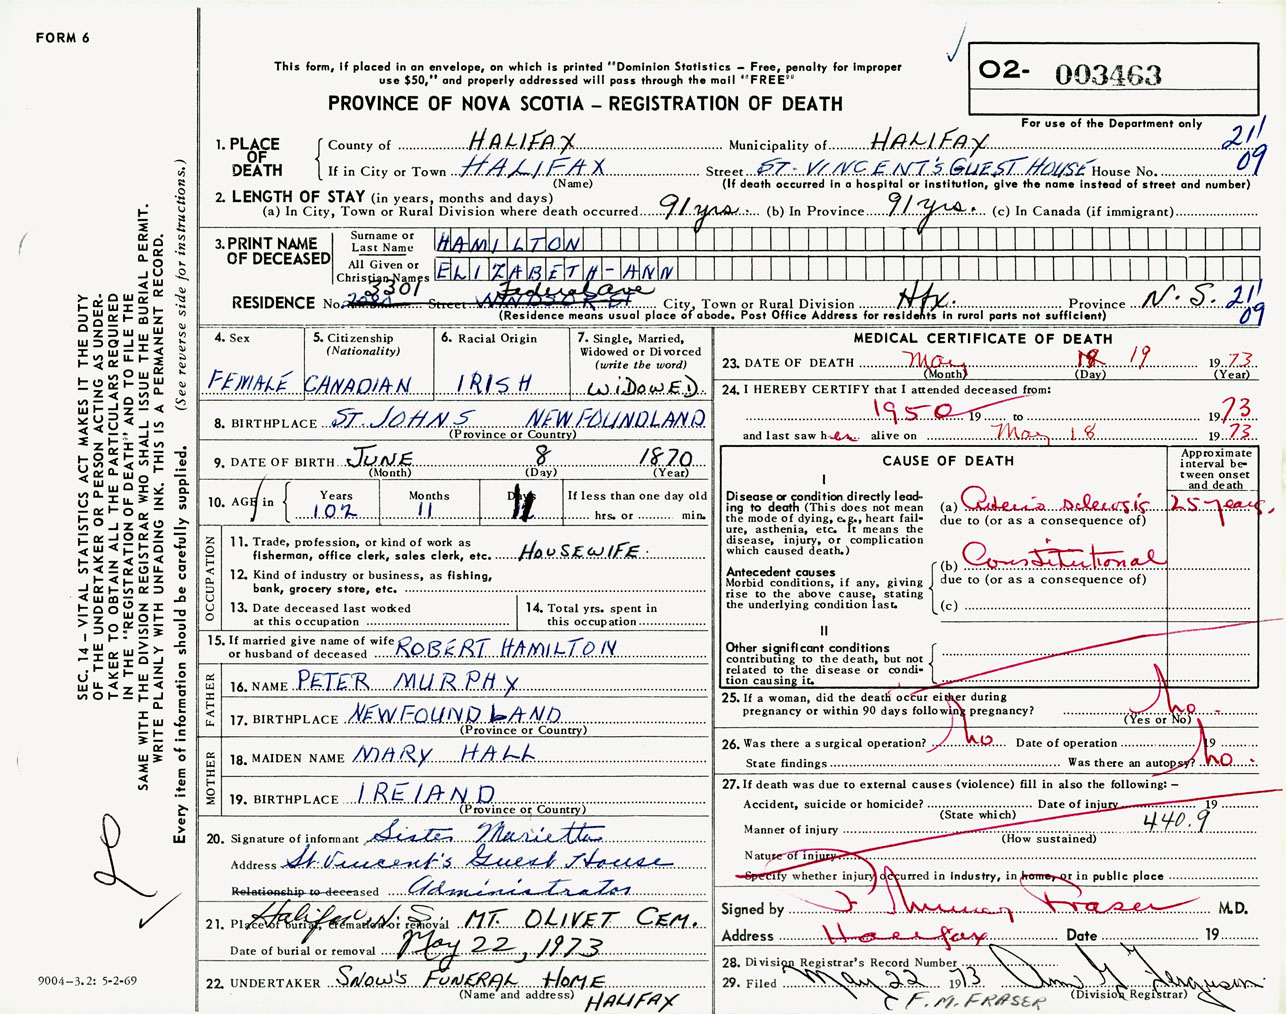 FORM 6
This form, if placed in an envelope, on which is printed "Dominion Statistics – Free, penalty for improper
use $50," and properly addressed will pass through the mail "FREE"
PROVINCE OF NOVA SCOTIA – REGISTRATION OF DEATH
O2- 003463
For use of the Department only
21/09
1. PLACE OF DEATH
County of HALIFAX Municipality of HALIFAX
If in City or Town HALIFAX Street ST. VINCENT'S GUEST HOUSE House No.
(Name) (If death occurred in a hospital or institution, give the name instead of street and number)
2. LENGTH OF STAY (in years, months and days)
(a) In City, Town or Rural Division where death occurred 91 yrs. (b) In Province 91 yrs. (c) In Canada (if immigrant)
3. PRINT NAME OF DECEASED
Surname or Last Name HAMILTON
All Given or Christian Names ELIZABETH-ANN
3301 Federal Ave
RESIDENCE No. 2080 Street WINDSOR ST City, Town or Rural Division Hfx. Province N.S. 21/09
(Residence means usual place of abode. Post Office Address for residents in rural parts not sufficient)
4. Sex FEMALE
5. Citizenship (Nationality) CANADIAN
6. Racial Origin IRISH
7. Single, Married, Widowed or Divorced (write the word) WIDOWED
8. BIRTHPLACE ST. JOHNS NEWFOUNDLAND
(Province or Country)
9. DATE OF BIRTH JUNE 8 1870
(Month) (Day) (Year)
10. AGE in Years 102 Months 11 Days 11 If less than one day old
hrs. or min.
OCCUPATION
11. Trade, profession, or kind of work as
fisherman, office clerk, sales clerk, etc. HOUSEWIFE.
12. Kind of industry or business, as fishing,
bank, grocery store, etc.
13. Date deceased last worked
at this occupation
14. Total yrs. spent in
this occupation
15. If married give name of wife
or husband of deceased ROBERT HAMILTON
FATHER
16. NAME PETER MURPHY
17. BIRTHPLACE NEWFOUNDLAND
(Province or Country)
MOTHER
18. MAIDEN NAME MARY HALL
19. BIRTHPLACE IRELAND
(Province or Country)
20. Signature of informant Sister Marietta
Address St. Vincent's Guest House
Relationship to deceased Administrator
21. Place of burial, cremation or removal Halifax N.S. MT. OLIVET CEM.
Date of burial or removal May 22, 1973
22. UNDERTAKER SNOW'S FUNERAL HOME
(Name and address) HALIFAX
MEDICAL CERTIFICATE OF DEATH
23. DATE OF DEATH May 18 19 1973
(Month) (Day) (Year)
24. I HEREBY CERTIFY that I attended deceased from:
1950 19 to 1973
and last saw her alive on May 18 1973
CAUSE OF DEATH
Approximate interval between onset and death
I
Disease or condition directly leading to death (This does not mean the mode of dying, e.g., heart failure, asthenia, etc. It means the disease, injury, or complication which caused death.)
(a) Arterio sclerosis 25 years.
due to (or as a consequence of)
Antecedent causes
Morbid conditions, if any, giving rise to the above cause, stating the underlying condition last.
(b) Constitutional
due to (or as a consequence of)
(c)
II
Other significant conditions
contributing to the death, but not related to the disease or condition causing it.
25. If a woman, did the death occur either during
pregnancy or within 90 days following pregnancy? no.
(Yes or No)
26. Was there a surgical operation? no Date of operation 19
State findings Was there an autopsy? no.
27. If death was due to external causes (violence) fill in also the following: –
Accident, suicide or homicide? Date of injury 19
(State which)
Manner of injury 440.9
(How sustained)
Nature of injury
Specify whether injury occurred in industry, in home, or in public place
Signed by F Murray Fraser M.D.
Address Halifax Date 19
28. Division Registrar's Record Number
29. Filed May 22 1973 Ann G Ferguson
(Division Registrar)
(F.M. FRASER
SEC. 14 – VITAL STATISTICS ACT MAKES IT THE DUTY
OF THE UNDERTAKER OR PERSON ACTING AS UNDER-
TAKER TO OBTAIN ALL THE PARTICULARS REQUIRED
IN THE "REGISTRATION OF DEATH" AND TO FILE THE
SAME WITH THE DIVISION REGISTRAR WHO SHALL ISSUE THE BURIAL PERMIT.
WRITE PLAINLY WITH UNFADING INK. THIS IS A PERMANENT RECORD.
Every item of information should be carefully supplied. (See reverse side for instructions.)
9004–3.2: 5-2-69